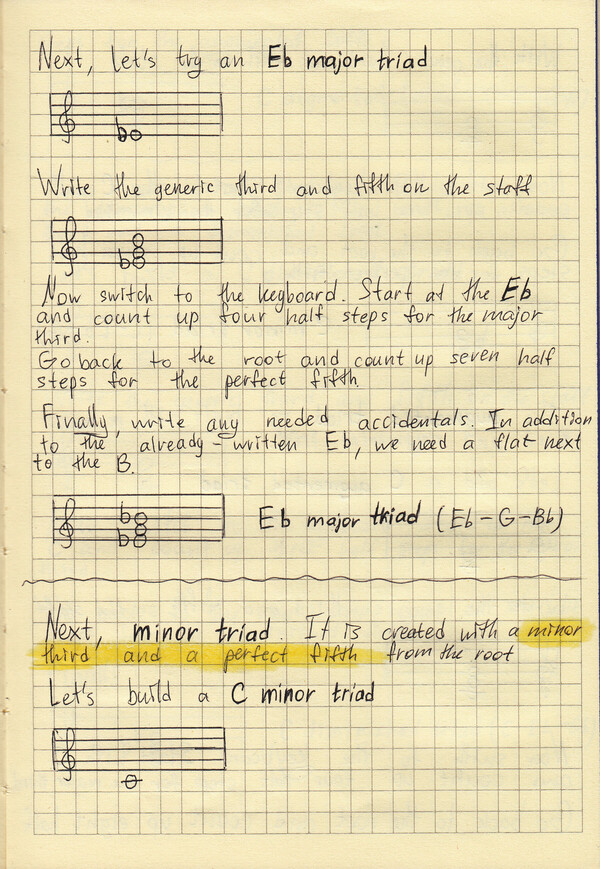 Next, Let's try an Eb major triad
Write the generic third and fifth on the staff
Now switch to the keyboard. Start at the Eb
and count up four half steps for the major
third.
Go back to the root and count up seven half
steps for the perfect fifth
Finally, write any needed accidentals. In addition
to the already-written Eb, we need a flat next
to the B.
Eb major triad (Eb-G-Bb)
Next, minor triad. It is created with a minor
third, and a perfect fifth from the root
Let's build a C minor triad